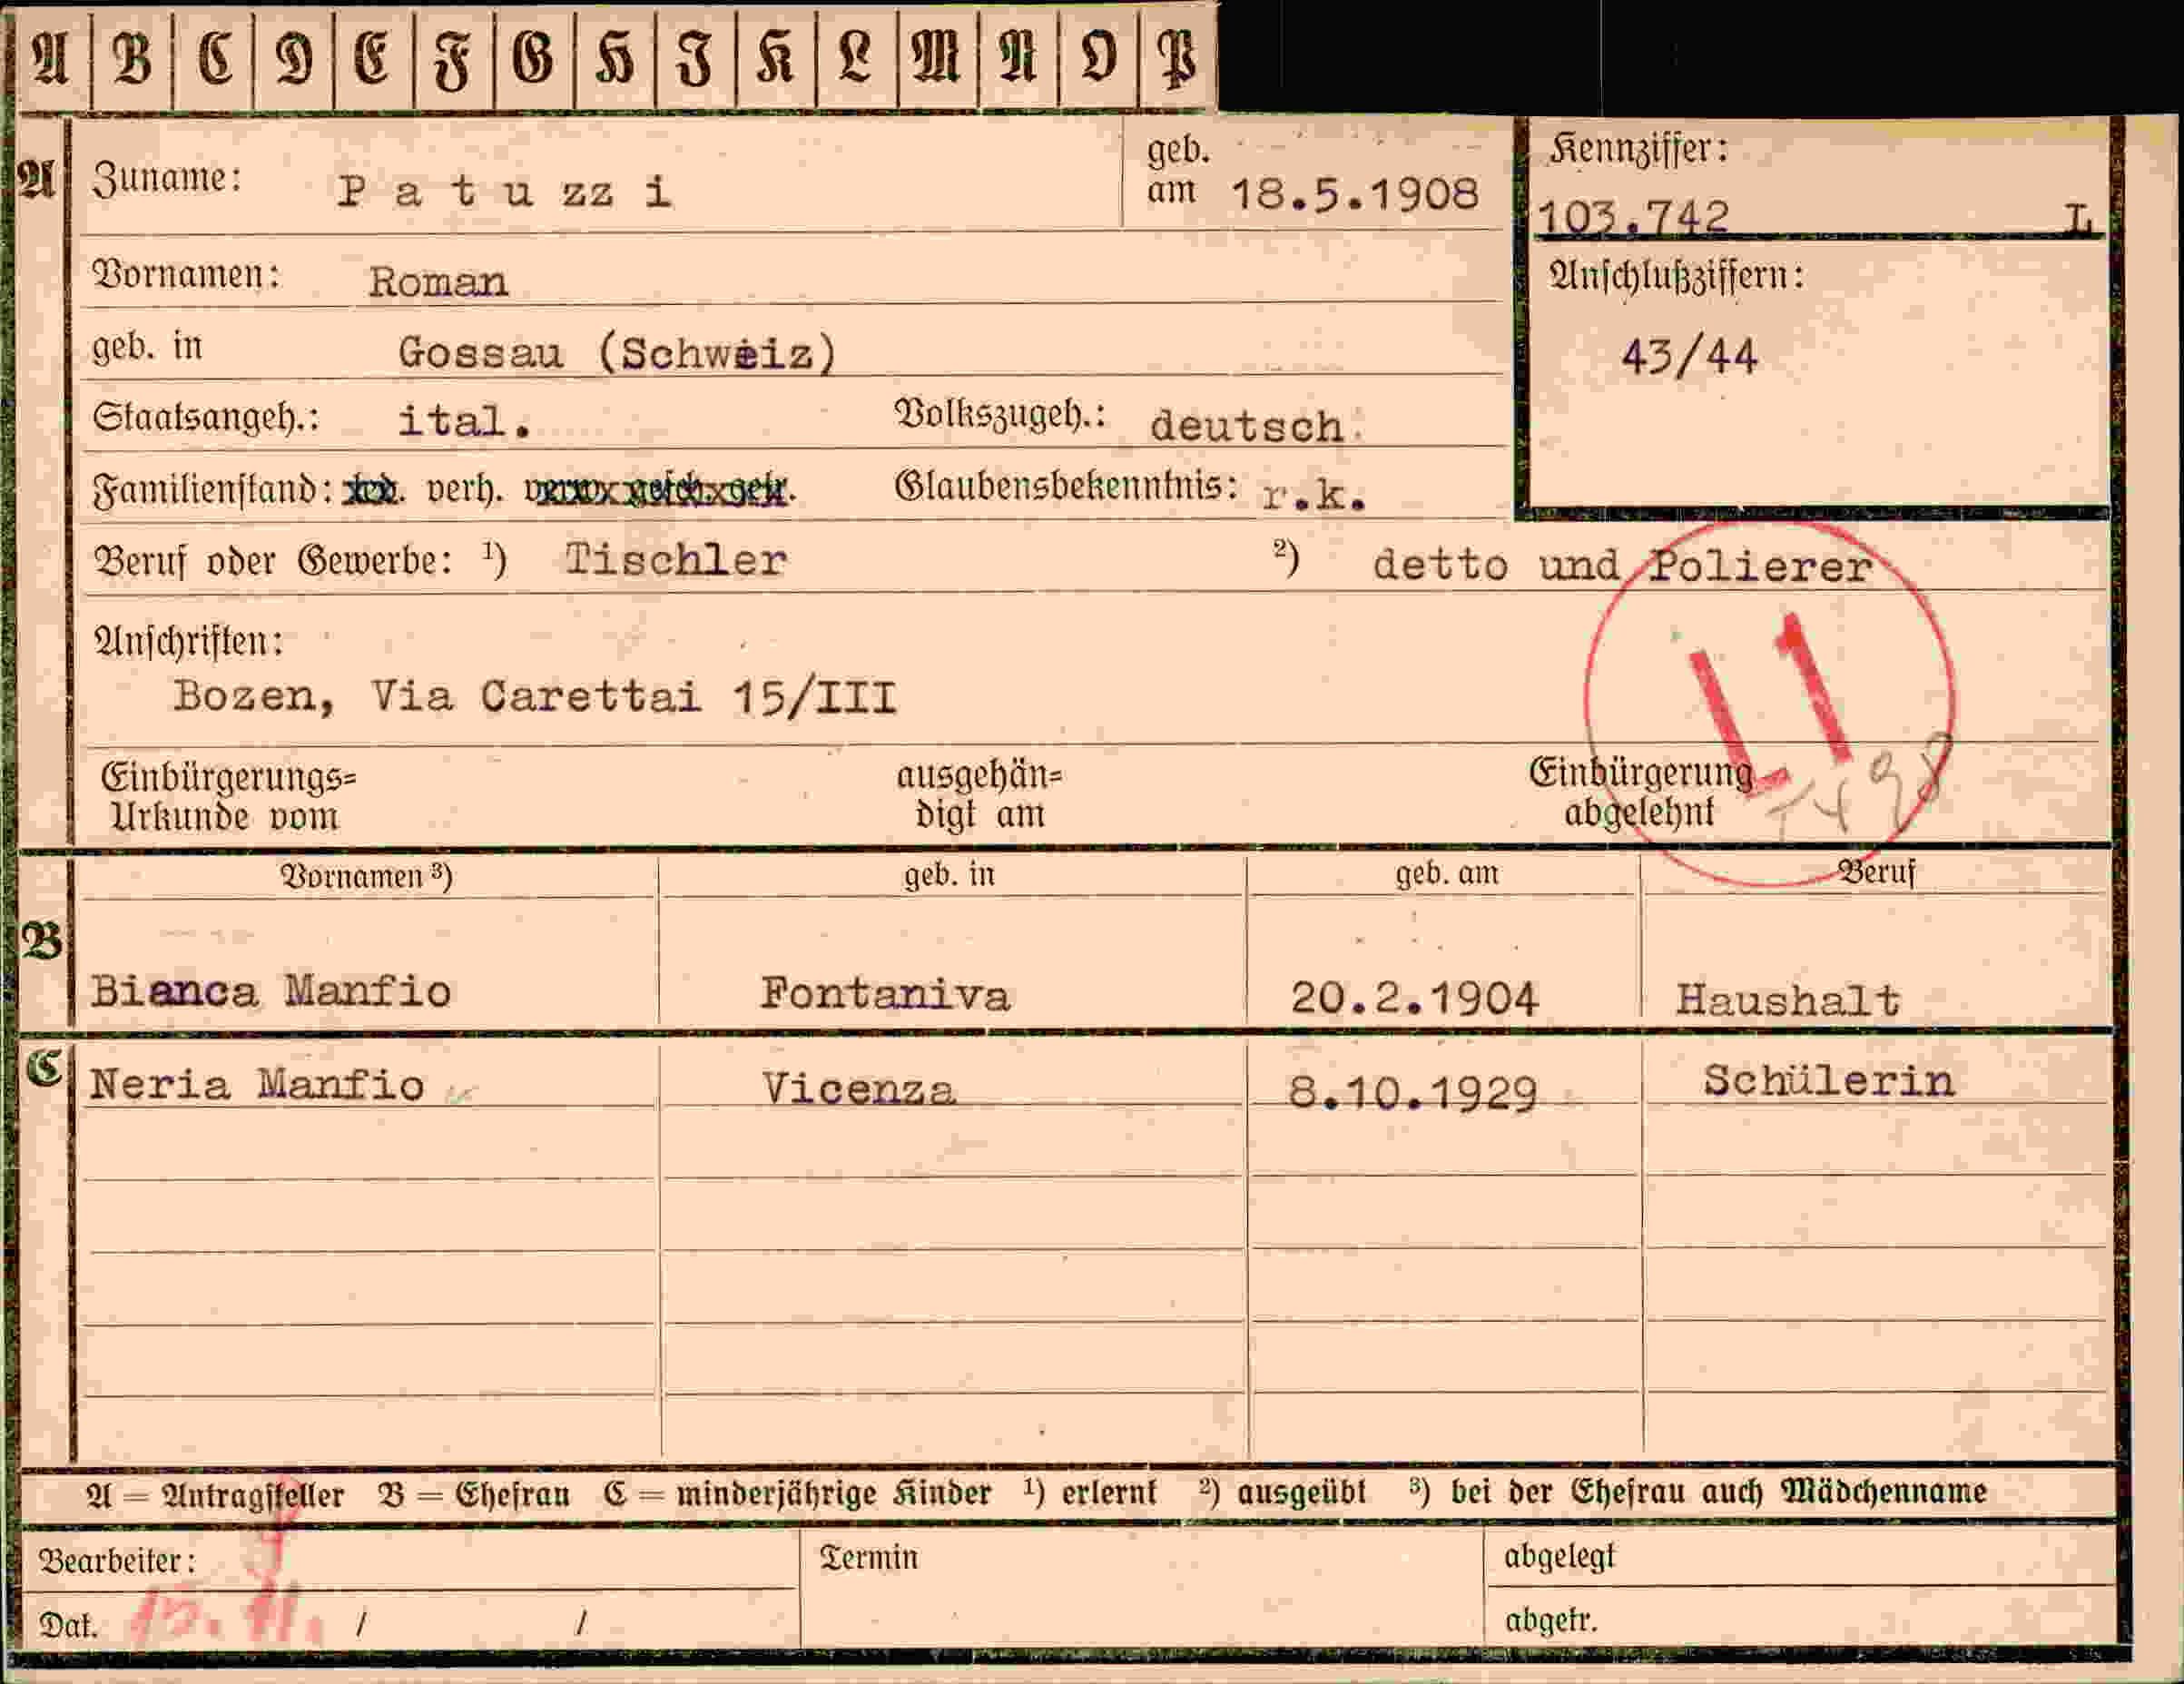 A B C D E F G H I K L M N O P
A Zuname: Patuzzi geb. am 18.5.1908
Kennziffer: 103.742 L
Vornamen: Roman
Anschlußziffern: 43/44
geb. in Gossau (Schweiz)
Staatsangeh.: ital. Volkszugeh.: deutsch.
Familienstand: verh. Glaubensbekenntnis: r.k.
Beruf oder Gewerbe: ¹) Tischler ²) detto und Polierer
Anschriften:
Bozen, Via Carettai 15/III
Einbürgerungs= ausgehän= Einbürgerung
Urkunde vom digt am abgelehnt
Vornamen ³) geb. in geb. am Beruf
B
Bianca Manfio Fontaniva 20.2.1904 Haushalt
C Neria Manfio Vicenza 8.10.1929 Schülerin
A = Antragsteller B = Ehefrau C = minderjährige Kinder ¹) erlernt ²) ausgeübt ³) bei der Ehefrau auch Mädchenname
Bearbeiter: Termin abgelegt
Dat. / / abgetr.